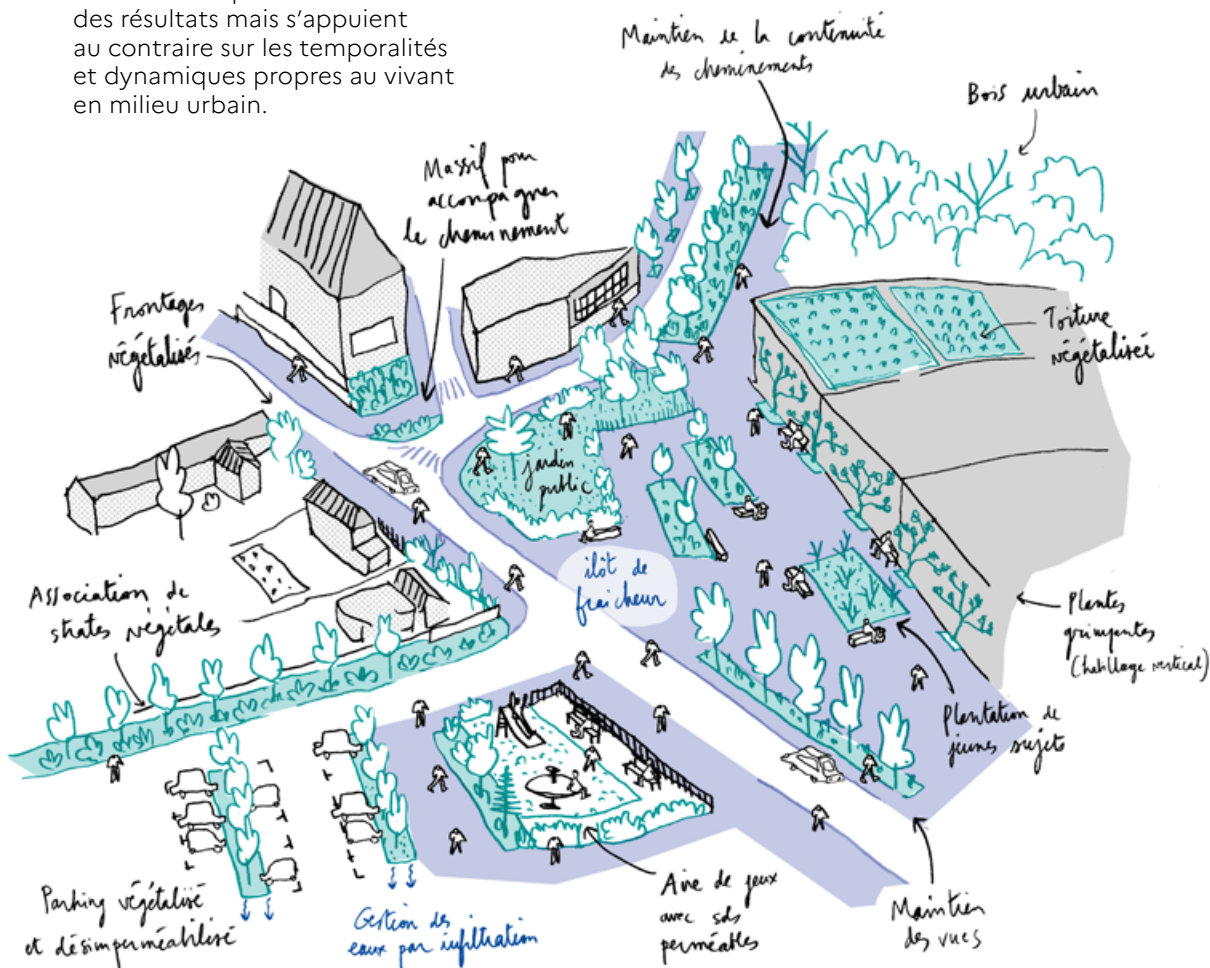 des résultats mais s’appuient
au contraire sur les temporalités
et dynamiques propres au vivant
en milieu urbain.
Maintien de la continuité
des cheminements
Bois urbain
Massif pour
accompagner
le cheminement
Frontages
végétalisés
Toiture
végétalisée
jardin
public
îlôt de
fraîcheur
Association de
strates végétales
Plantes
grimpantes
(habillage vertical)
Plantation de
jeunes sujets
Parking végétalisé
et désimperméabilisé
Gestion des
eaux par infiltration
Aire de jeux
avec sols
perméables
Maintien
des vues